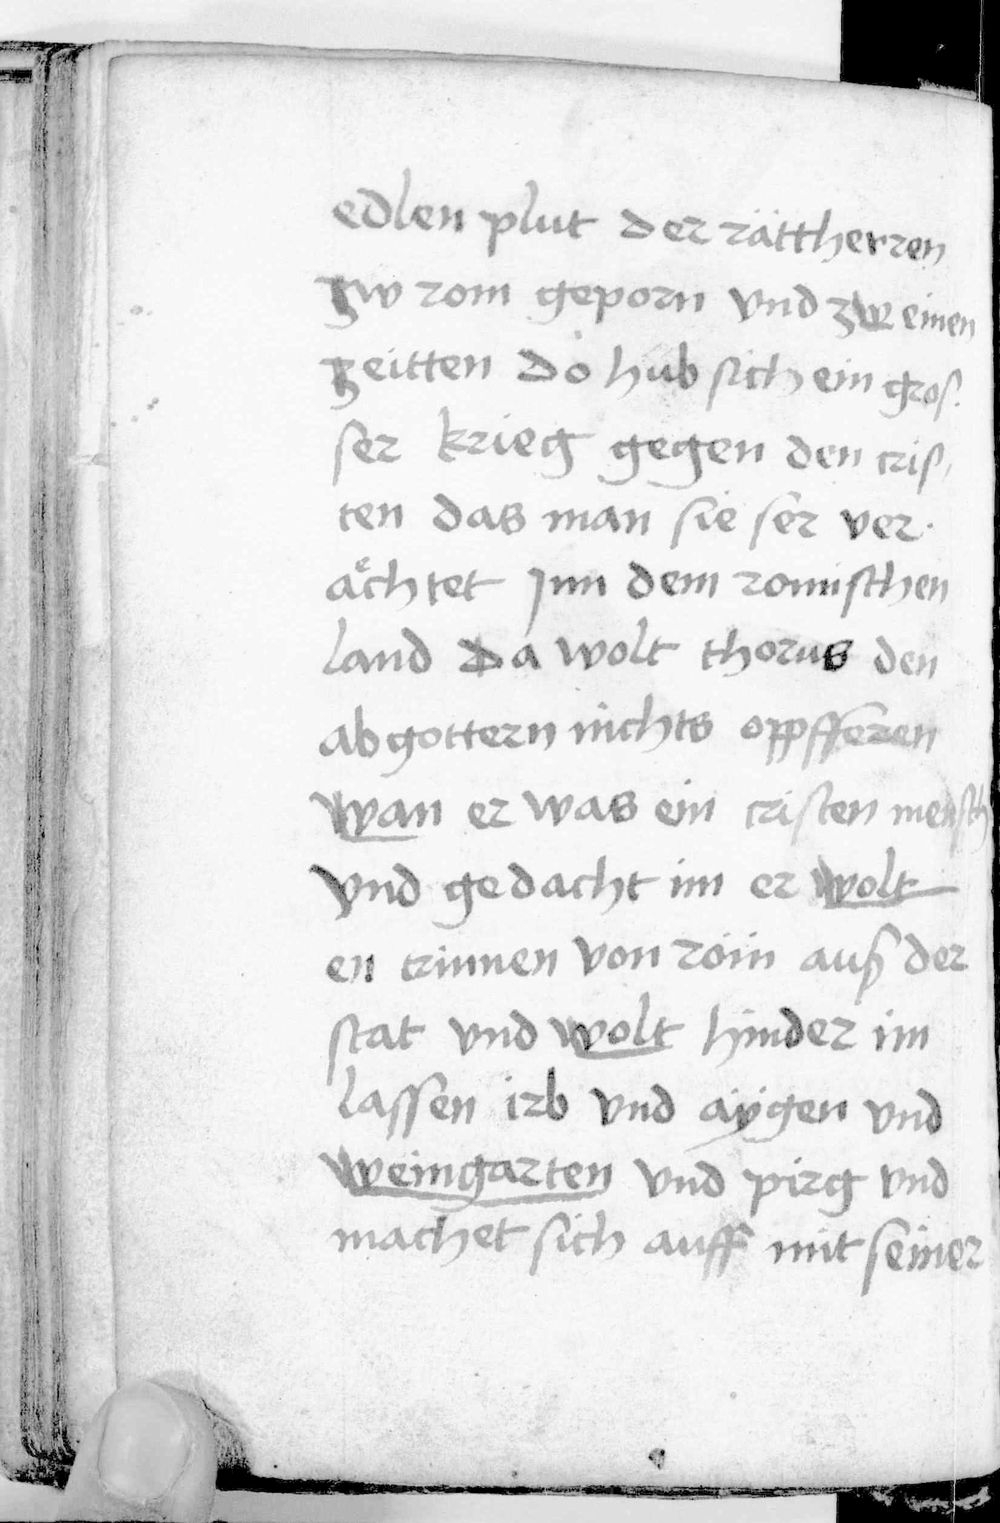 edlen plut der rättherren
zw rom geporn vnd zw einen
zeitten do hub sich ein gros
ser krieg gegen den cris
ten das man sie ser ver
ächtet Inn dem romischen
land Da wolt thorus den
abgottern nichts oppfferen
wan er was ein cristen mensch
vnd gedacht im er wolt
en trinnen von röm auß der
stat vnd wolt hinder im
lassen irb vnd aÿgen vnd
weingarten vnd pirg vnd
machet sich auff mit seiner